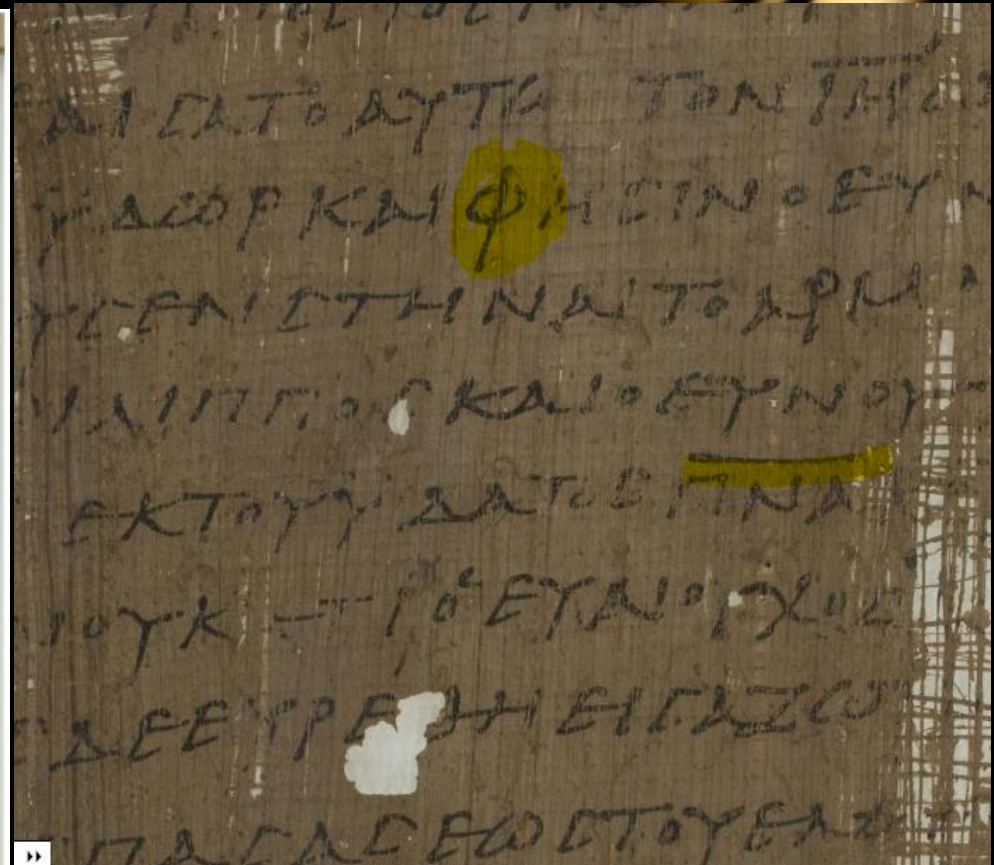 ΛΙϹΑΤΟΑΥΤΩ ΤΟΝ Ι̅Η̅
ΥΔΩΡ ΚΑΙ ΦΗϹΙΝ Ο ΕΥΝ
ΥϹΕΝ ϹΤΗΝΑΙ ΤΟ ΑΡΜΑ
ΙΛΙΠΠΟϹ ΚΑΙ Ο ΕΥΝΟΥ
ΕΚ ΤΟΥ ΥΔΑΤΟϹ Π̅Ν̅Α̅
ΟΥΚ Ο ΕΥΝΟΥΧΟϹ
ϹΔΕ ΕΥΡΕΘΗ ΕΙϹ ΑΖΩ
ΠΑϹΑϹ ΕΩϹ ΤΟΥ ΕΛΘ